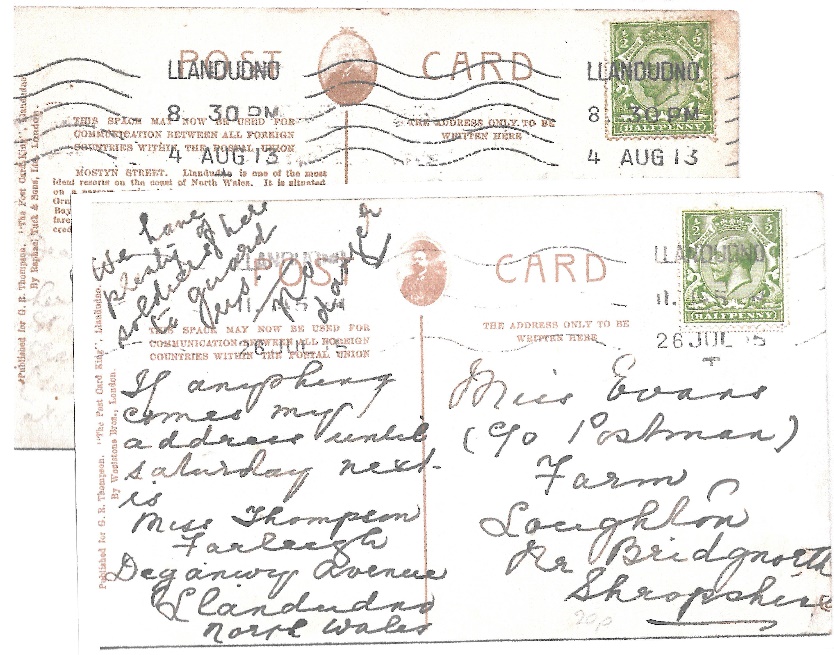 POST CARD
LLANDUDNO
8. 30 PM
4 AUG 13
LLANDUDNO
8. 30 PM
4 AUG 13
HALFPENNY
THIS SPACE MAY NOW BE USED FOR
COMMUNICATION BETWEEN ALL FOREIGN
COUNTRIES WITHIN THE POSTAL UNION
THE ADDRESS ONLY TO BE
WRITTEN HERE
MOSTYN STREET. Llandudno is one of the most
ideal resorts on the coast of North Wales. It is situated
Published for G. R. Thompson, "The Post Card King", Llandudno,
By Raphael Tuck & Sons, Ltd., London.
We have
plenty of
soldiers here
to guard
us. No
danger
POST CARD
LLANDUDNO
26 JUL 15
LLANDUDNO
26 JUL 15
HALFPENNY
THIS SPACE MAY NOW BE USED FOR
COMMUNICATION BETWEEN ALL FOREIGN
COUNTRIES WITHIN THE POSTAL UNION
THE ADDRESS ONLY TO BE
WRITTEN HERE
Published for G. R. Thompson, "The Post Card King", Llandudno.
By Woolstone Bros., London.
If anything
comes my
address until
saturday next
is
Miss Thompson
Farleigh
Deganwy Avenue
Llandudno
North Wales
Miss Evans
(C/o Postman)
Farm
Loughton
Nr Bridgnorth
Shropshire
20p